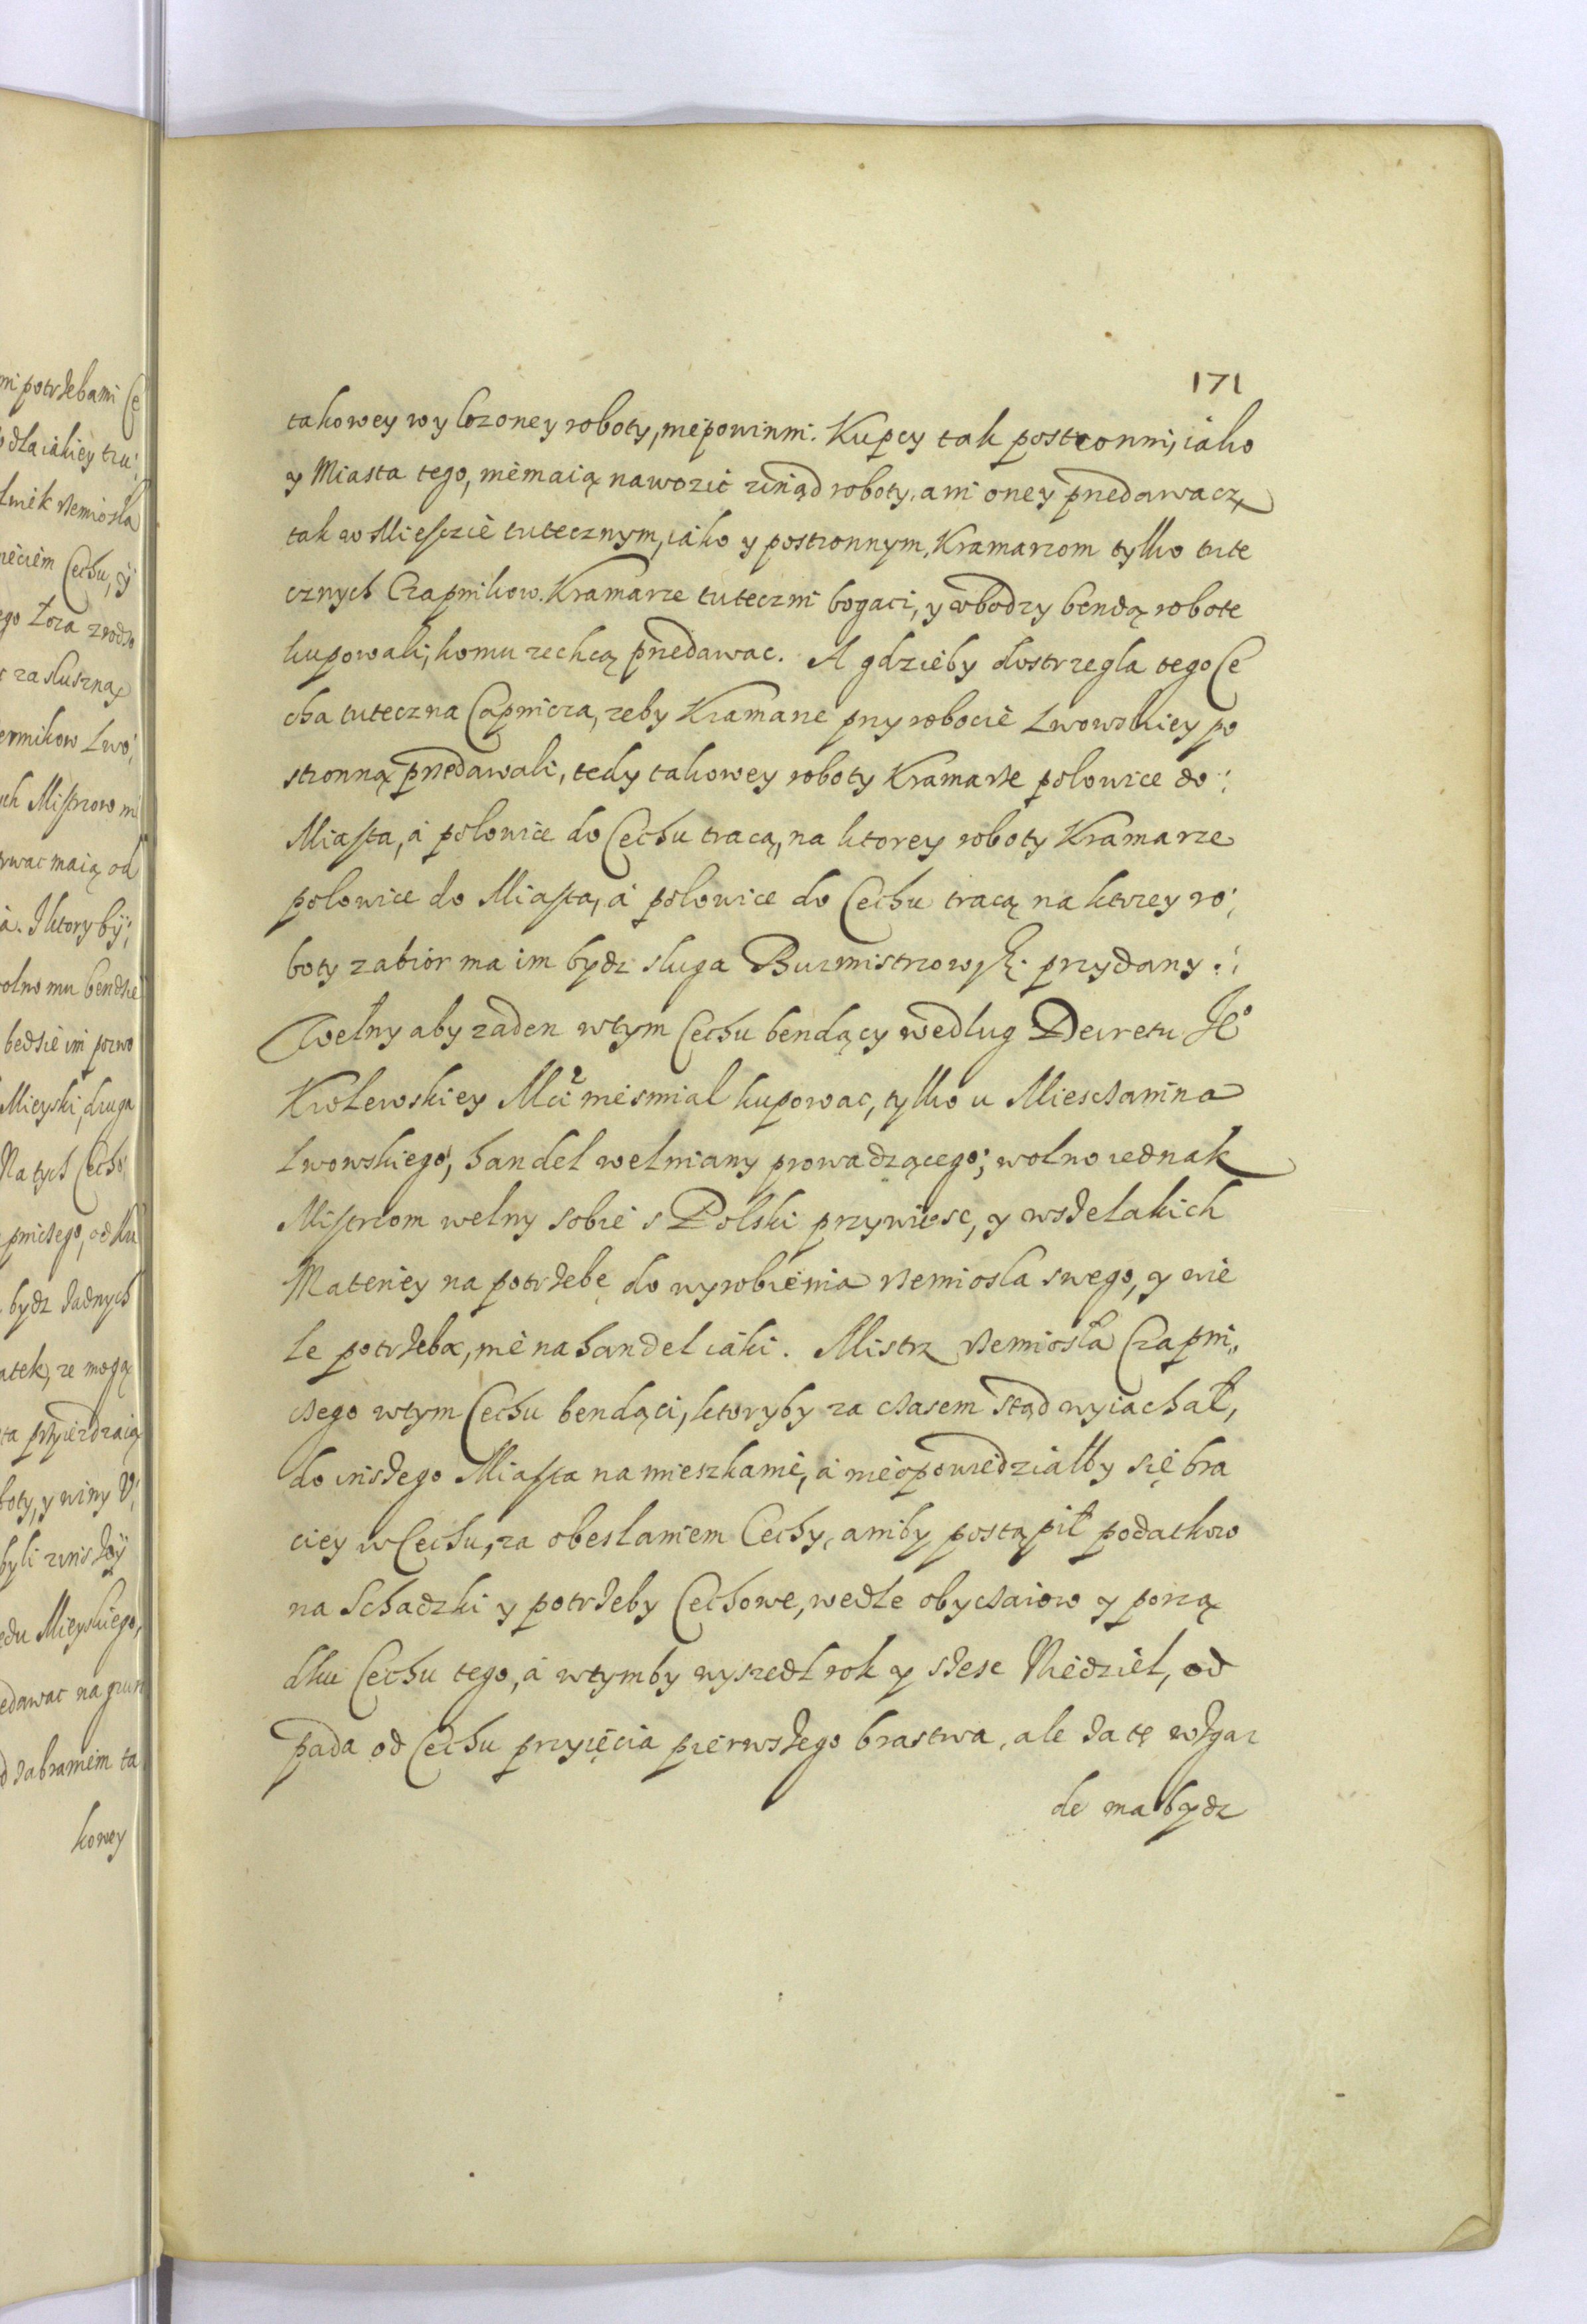 171
takowey wylozoney roboty, niepowinni. Kupcy tak postronni, iako
y Miasta tego, niemaią nawozić zinąd roboty, ani oney przedawacz,
tak w Miesczie tutecznym, iako y postronnym, Kramarzom tylko tute
cznych Czapnikow. Kramarze tuteczni bogaci, y vbodzy bendą robote
kupowali, komu zechcą przedawac. A gdzieby dostrzegla tego Ce
cha tuteczna Capnicza, zeby Kramarze przy robocie Lwowskiey po
stronną przedawali, tedy takowey roboty Kramarze polowice do:
Miasta, á polowice do Cechu tracą, na ktorey roboty Kramarze
polowice do Miasta, á polowice do Cechu tracą na ktorey ro:
boty zabior ma im bydz sluga Burmistrzowsk: przydany.
Wełny aby zaden wtym Cechu bendący według Decretu Je°
Krolewskiey Mci niesmial kupowac, tylko u Miesczanina
Lwowskiego, handel welniany prowadzącego; wolno iednak
Mistrzom welny sobie s Polski przywiesc, y wszelakich
Materiey na potrzebę do wyrobienia rzemiosla swego, y wie
le potrzeba, nie na handel iaki. Mistrz rzemiosła Czapni„
czego wtym Cechu bendąci, ktoryby za czasem stąd wyiachał,
do inszego Miasta na mieszkanie, á nieopowiedziałby się bra
ciey w Cechu, za obeslaniem Cechy, aniby postąpił podatkow
na Schadzki y potrzeby Cechowe, wedle obyczaiow y porzą
dku Cechu tego, á wtymby wyszedł rok y szesc Niedziel, od
pada od Cechu przyięcia pierwszego brastwa, ale za tę wzgar
de ma bydz